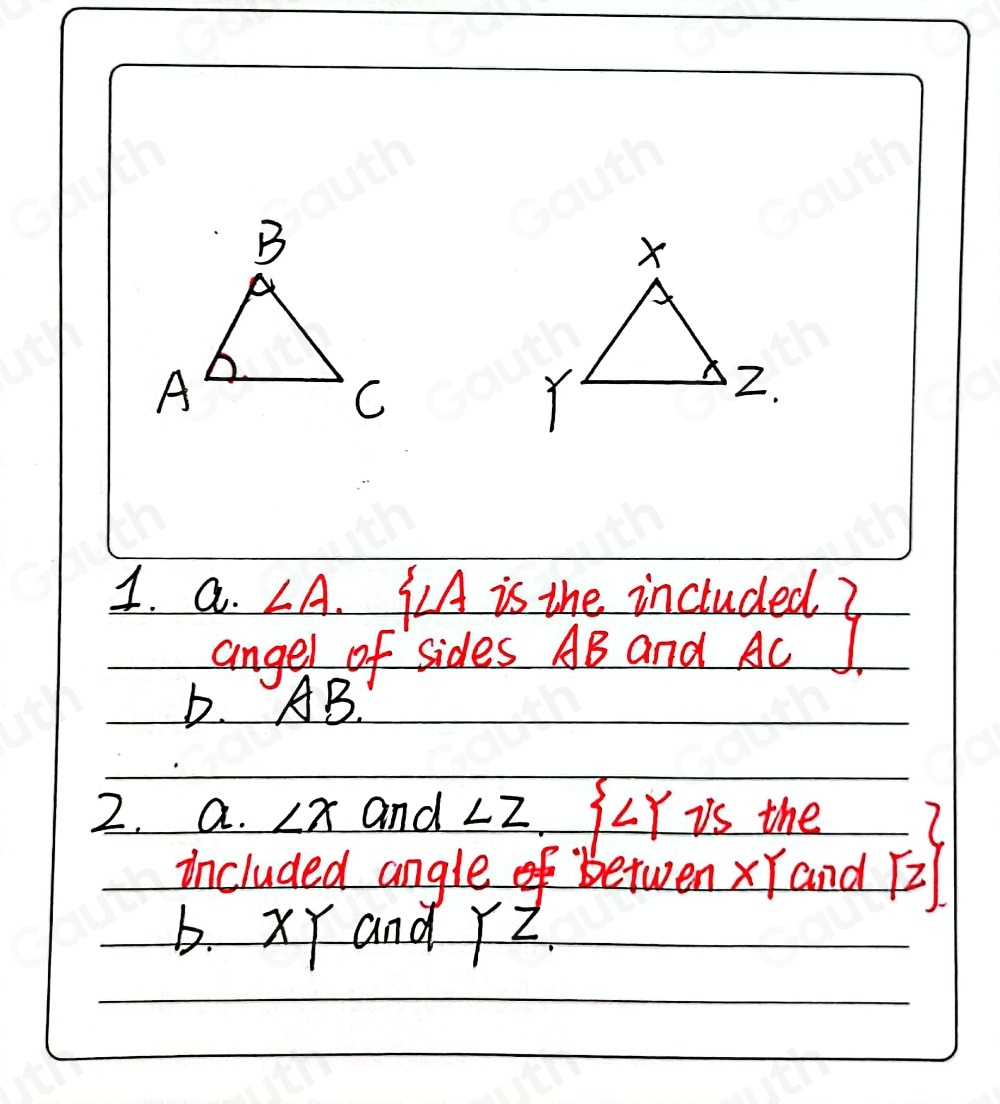 B
A
C
X
Y
Z.
1. a. ∠A. {∠A is the included
angel of sides AB and AC }.
b. AB.
2. a. ∠X and ∠Z. {∠Y is the
included angle of betwen XY and YZ}.
b. XY and YZ.